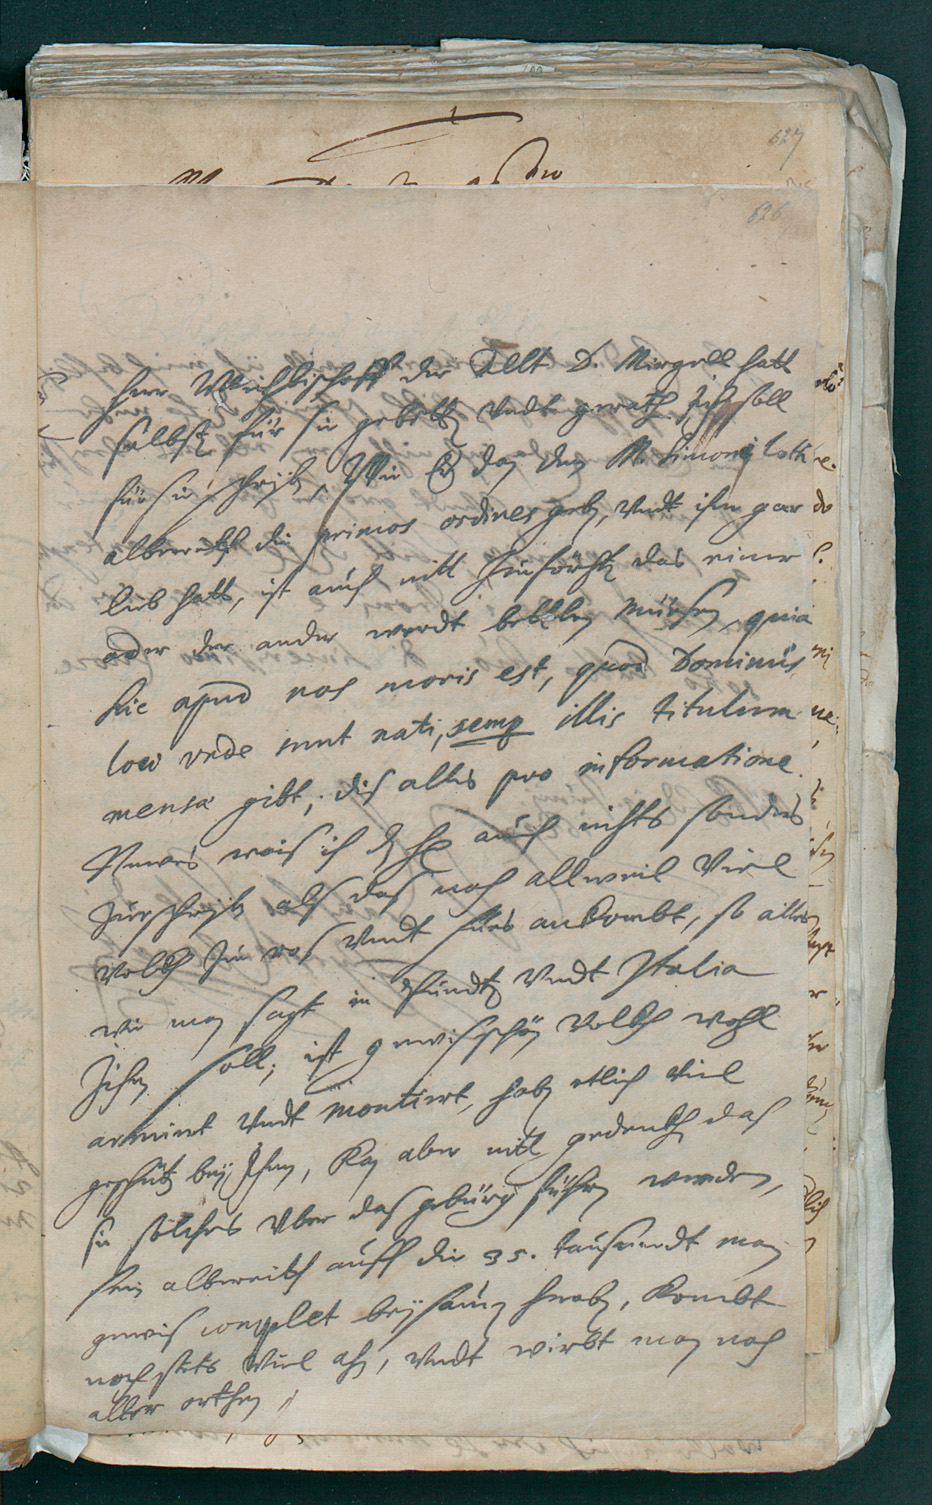 627
626
herr Weichbischoff der Alltt D. Mirgell hatt
selbst für sie gebetten vndt gerath Ich soll
für sie schreiben, Wie Er dan dem M. Simoni
albereith die primos ordines geben, vndt ihm gar
lieb hatt, ist auch nitt zu förchten das einer
oder der ander werdt bettlen müesen, quia
hic apud nos moris est, quod Dominus
loci vnde sunt nati, semp illis titulum
mensæ gibt; dis alles pro informatione.
Newes weis ich auch nichts sonders
zu schreiben als das noch allweil Viel
Volckh zu ros vndt fues ankombt, so alles
wie man sagt in Pündten vndt Italia
Ziehen soll; ist gewis schön Volckh wohl
armirt vndt montirt, haben etlich viel
geschütz bey Ihnen, kan aber nitt gedenckhen das
sie solches vber das gebürg führen werden,
sein albereith auff die 35. tausendt man
gewis complet beysamen herab, kombt
noch stets viel ahn, vndt wirbt man noch
aller orthen